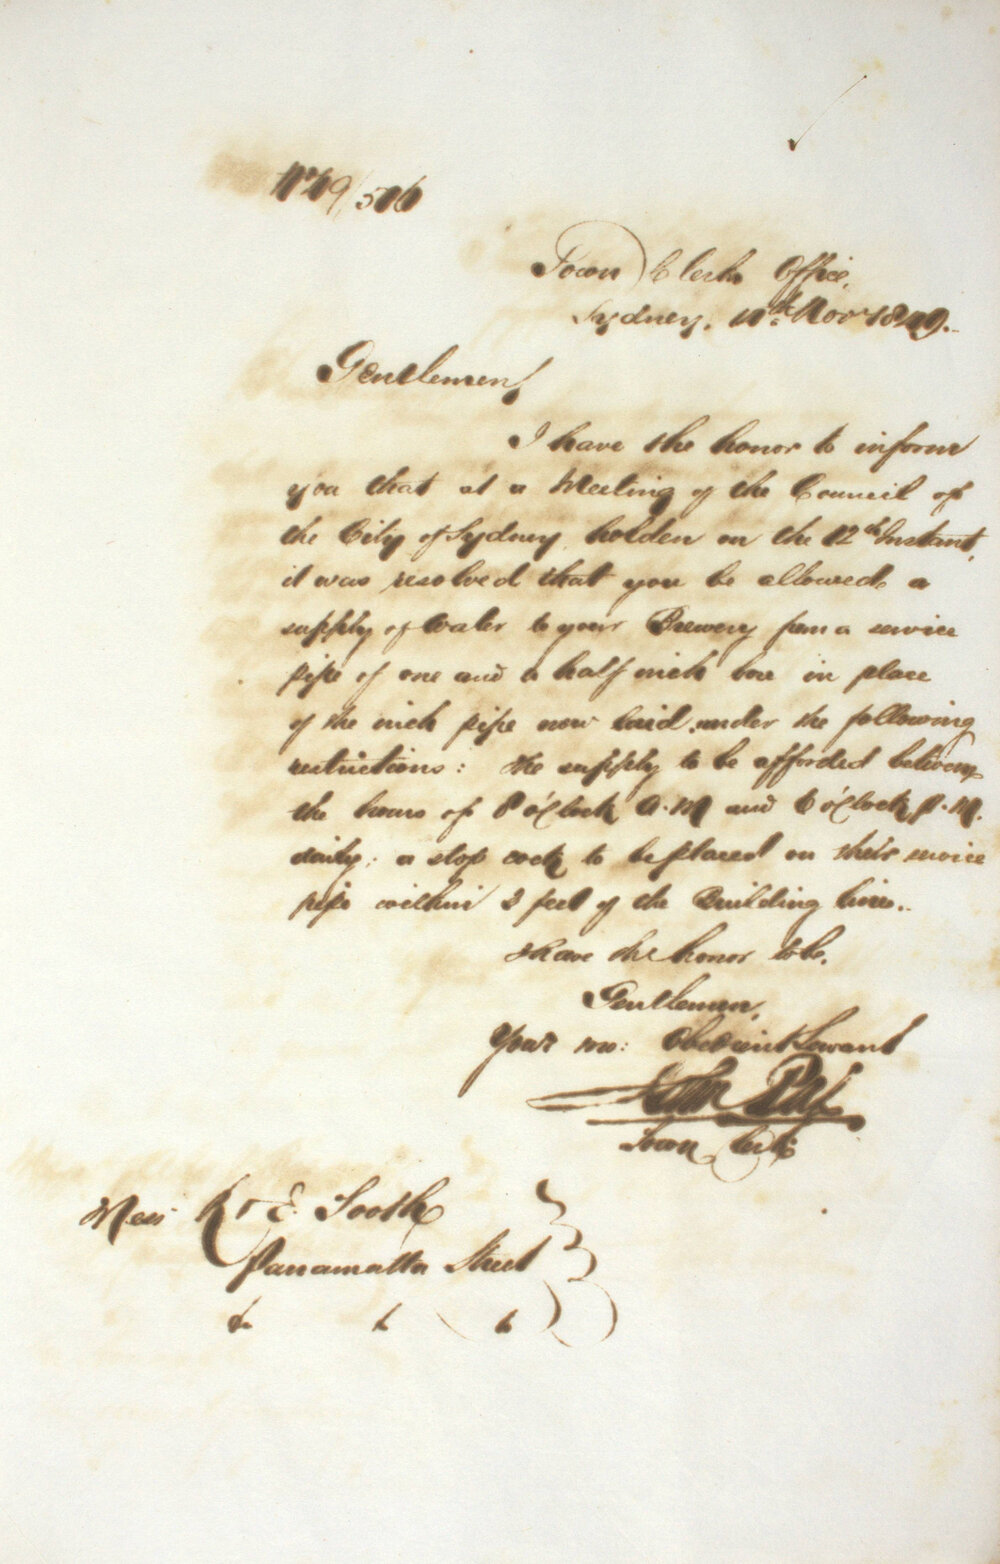 No 49/506
Town Clerks Office,
Sydney, 14th Novr 1849.
Gentlemen,
I have the honor to inform
you that at a Meeting of the Council of
the City of Sydney holden on the 12th Instant,
it was resolved that you be allowed a
supply of Water to your Brewery from a service
pipe of one and a half inch bore in place
of the inch pipe now laid under the following
restrictions: the supply to be afforded between
the hours of 8 o'Clock A.M and 6 o'Clock P.M.
daily; a stop cock to be placed on their service
pipe within 2 feet of the Building line.
I have the honor to be,
Gentlemen,
Your mo: Obedient Servant
John
Town Clerk
Messrs R & E. Tooth
Parramatta Street